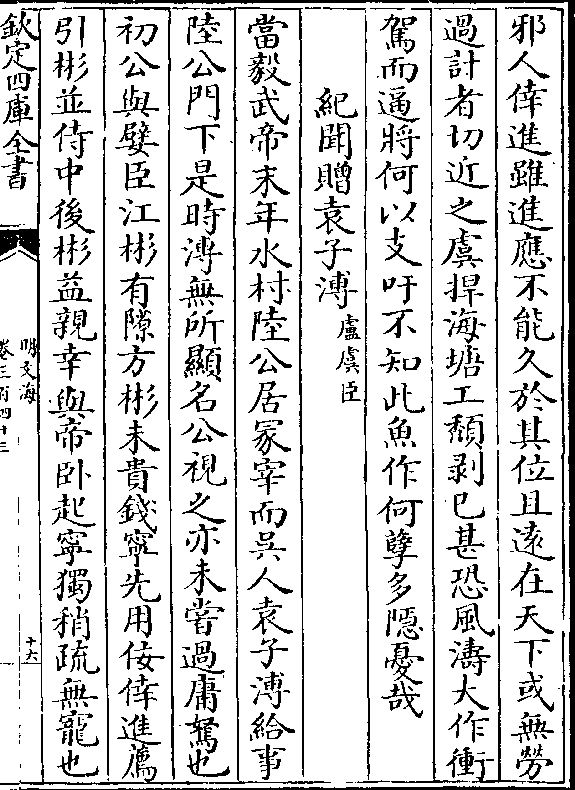 邪人倖進雖進應不能久於其位且遠在天下或無勞
過計者切近之虞捍海塘工頽剥已甚恐風濤大作衝
駕而逼將何以支吁不知此魚作何孽多隠憂哉
紀聞贈袁子溥盧虞臣
當毅武帝末年水村陸公居冢宰而吳人袁子溥給事
陸公門下是時溥無所顯名公視之亦未嘗過庸駑也
初公與嬖臣江彬有隙方彬未貴錢寧先用佞倖進薦
引彬並侍中後彬益親幸與帝卧起寧獨稍疏無寵也
欽定四庫全書
明文海
卷三百四十三
十六